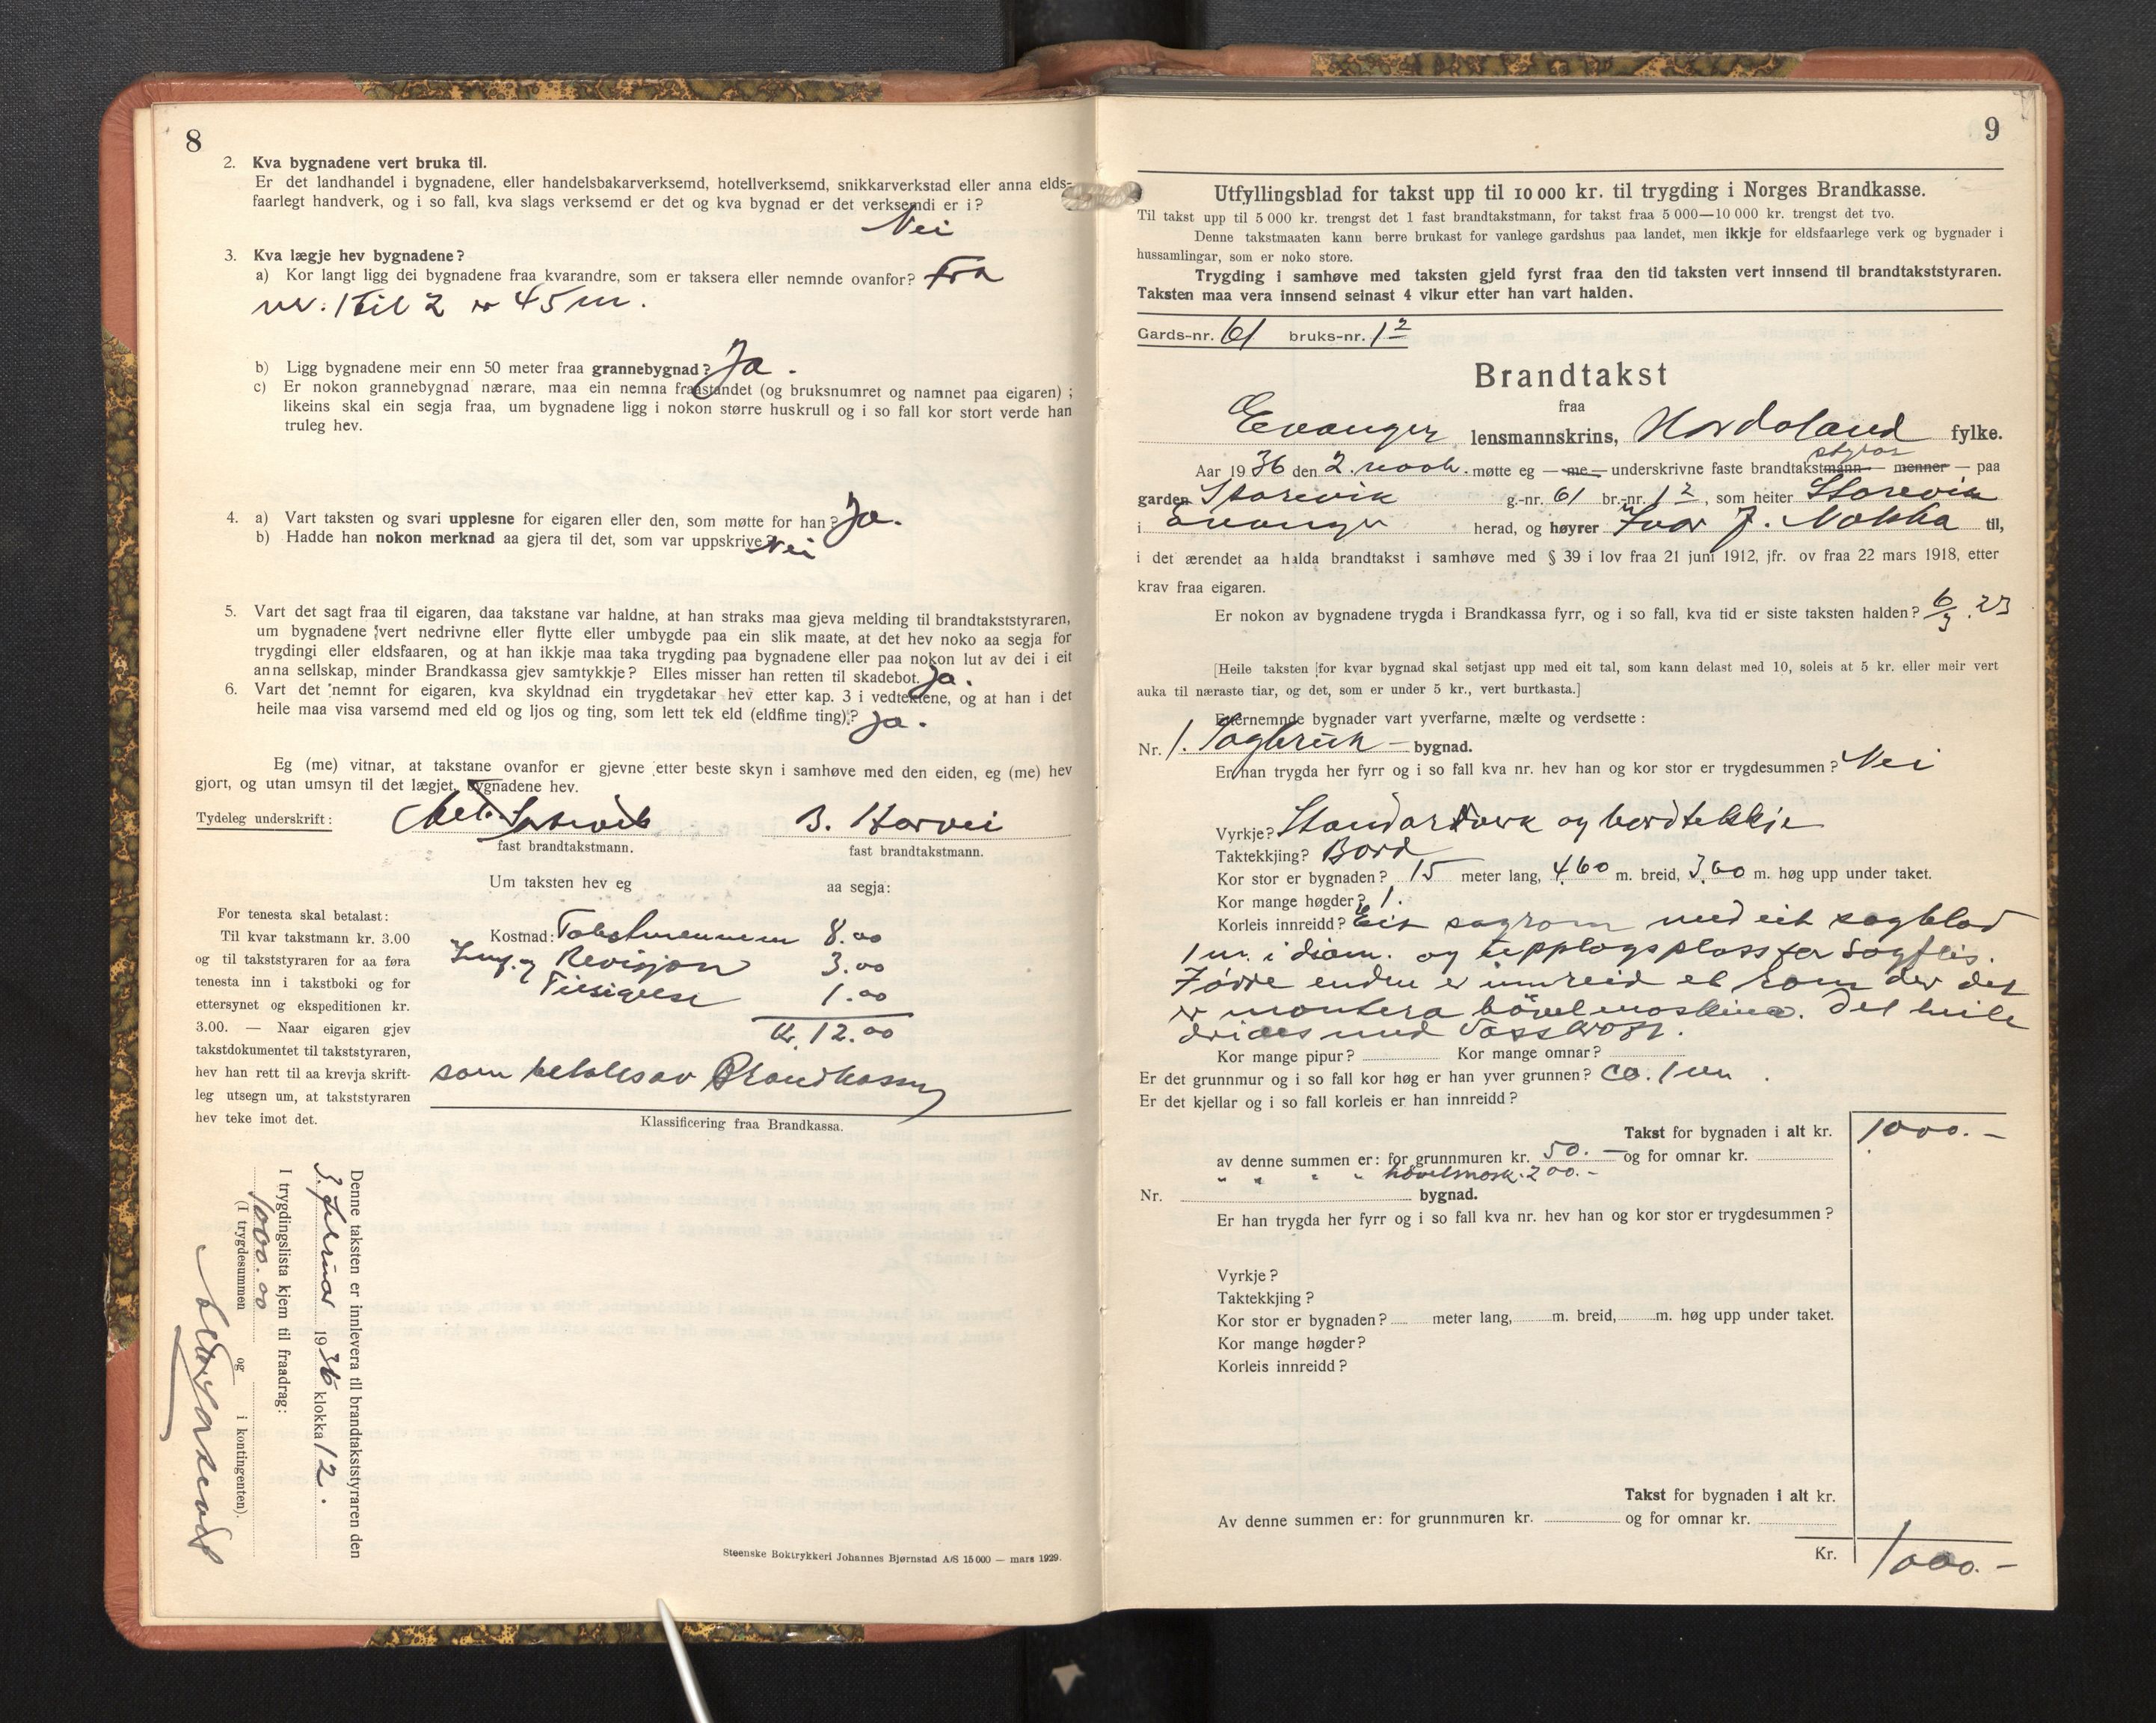 8
2. Kva bygnadene vert bruka til.
Er det landhandel i bygnadene, eller handelsbakarverksemd, hotellverksemd, snikkarverkstad eller anna elds-
faarlegt handverk, og i so fall, kva slags verksemd er det og kva bygnad er det verksemdi er i?
Nei
3. Kva lægje hev bygnadene?
a) Kor langt ligg dei bygnadene fraa kvarandre, som er taksera eller nemnde ovanfor? Fra
nr. 1 til 2 er 45 m.
b) Ligg bygnadene meir enn 50 meter fraa grannebygnad? Ja.
c) Er nokon grannebygnad nærare, maa ein nemna fraastandet (og bruksnumret og namnet paa eigaren);
likeins skal ein segja fraa, um bygnadene ligg i nokon større huskrull og i so fall kor stort verde han
truleg hev.
4. a) Vart taksten og svari upplesne for eigaren eller den, som møtte for han? Ja.
b) Hadde han nokon merknad aa gjera til det, som var uppskrive? Nei
5. Vart det sagt fraa til eigaren, daa takstane var haldne, at han straks maa gjeva melding til brandtakststyraren,
um bygnadene vert nedrivne eller flytte eller umbygde paa ein slik maate, at det hev noko aa segja for
trygdingi eller eldsfaaren, og at han ikkje maa taka trygding paa bygnadene eller paa nokon lut av dei i eit
anna sellskap, minder Brandkassa gjev samtykkje? Elles misser han retten til skadebot. Ja.
6. Vart det nemnt for eigaren, kva skyldnad ein trygdetakar hev etter kap. 3 i vedtektene, og at han i det
heile maa visa varsemd med eld og ljos og ting, som lett tek eld (eldfime ting)? Ja.
Eg (me) vitnar, at takstane ovanfor er gjevne etter beste skyn i samhøve med den eiden, eg (me) hev
gjort, og utan umsyn til det lægjet, bygnadene hev.
Tydeleg underskrift: B. Horvei
fast brandtakstmann. fast brandtakstmann.
Um taksten hev eg aa segja:
For tenesta skal betalast:
Til kvar takstmann kr. 3.00
og til takststyraren for aa føra
tenesta inn i takstboki og for
ettersynet og ekspeditionen kr.
3.00. — Naar eigaren gjev
takstdokumentet til takststyraren,
hev han rett til aa krevja skrift-
leg utsegn um, at takststyraren
hev teke imot det.
Kostnad: Takstmennene 8.00
Innf. og Revisjon 3.00
Tilsigelse 1.00
Kr. 12.00
som betales av Brandkassen
Klassificering fraa Brandkassa.
Denne taksten er innlevera til brandtakststyraren den
3. februar 1936 klokka 12.
I trygdingslista kjem til fraadrag:
1000.00
(I trygdesummen og i kontingenten).
Steenske Boktrykkeri Johannes Bjørnstad A/S 15 000 — mars 1929.
9
Utfyllingsblad for takst upp til 10 000 kr. til trygding i Norges Brandkasse.
Til takst upp til 5 000 kr. trengst det 1 fast brandtakstmann, for takst fraa 5 000—10 000 kr. trengst det tvo.
Denne takstmaaten kann berre brukast for vanlege gardshus paa landet, men ikkje for eldsfaarlege verk og bygnader i
hussamlingar, som er noko store.
Trygding i samhøve med taksten gjeld fyrst fraa den tid taksten vert innsend til brandtakststyraren.
Taksten maa vera innsend seinast 4 vikur etter han vart halden.
Gards-nr. 61 bruks-nr. 1 2
Brandtakst
fraa
Evanger lensmannskrins, Hordaland fylke.
styrar
Aar 1936 den 2. møtte eg — me — underskrivne faste brandtakstmann — menner — paa
garden Storevik g.-nr. 61 br.-nr. 1 2, som heiter Storevik
i Evanger herad, og høyrer Ivar J. Nokka til,
i det ærendet aa halda brandtakst i samhøve med § 39 i lov fraa 21 juni 1912, jfr. ov fraa 22 mars 1918, etter
krav fraa eigaren.
Er nokon av bygnadene trygda i Brandkassa fyrr, og i so fall, kva tid er siste taksten halden? 6/3. 23
[Heile taksten for kvar bygnad skal setjast upp med eit tal, som kann delast med 10, soleis at 5 kr. eller meir vert
auka til næraste tiar, og det, som er under 5 kr., vert burtkasta.]
Etternemnde bygnader vart yverfarne, mælte og verdsette:
Nr. 1. Sagbruk — bygnad.
Er han trygda her fyrr og i so fall kva nr. hev han og kor stor er trygdesummen? Nei
Vyrkje? Standarverk og bordtekkje
Taktekkjing? Bord
Kor stor er bygnaden? 15 meter lang, 4.60 m. breid, 3.60 m. høg upp under taket.
Kor mange høgder? 1.
Korleis innreidd? Eit sagrom med eit sagblad
1 m. i diam. og upplagsplass for sagflis.
I övre enden er innreid et rom der det
er montera hövelmaskine. Det heile
drives med Vasskraft.
Kor mange pipur? Kor mange omnar?
Er det grunnmur og i so fall kor høg er han yver grunnen? ca. 1 m.
Er det kjellar og i so fall korleis er han innreidd?
Takst for bygnaden i alt kr. 1000.—
av denne summen er: for grunnmuren kr. 50.— og for omnar kr.
" " " " hövelmask. 200.—
Nr. bygnad.
Er han trygda her fyrr og i so fall kva nr. hev han og kor stor er trygdesummen?
Vyrkje?
Taktekkjing?
Kor stor er bygnaden? meter lang, m. breid, m. høg upp under taket.
Kor mange høgder?
Korleis innreidd?
Takst for bygnaden i alt kr.
Av denne summen er: for grunnmuren kr. og for omnar kr.
Kr. 1000.—